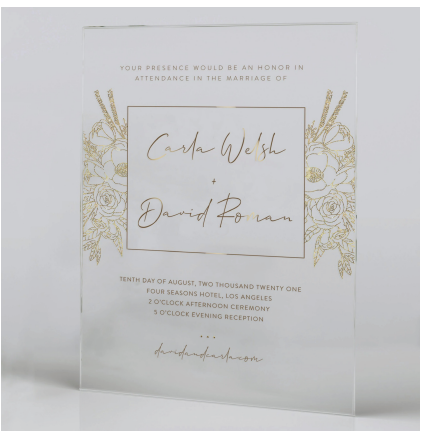 YOUR PRESENCE WOULD BE AN HONOR IN
ATTENDANCE IN THE MARRIAGE OF
Carla Welsh
+
David Roman
TENTH DAY OF AUGUST, TWO THOUSAND TWENTY ONE
FOUR SEASONS HOTEL, LOS ANGELES
2 O'CLOCK AFTERNOON CEREMONY
5 O'CLOCK EVENING RECEPTION
...
davidandcarla.com